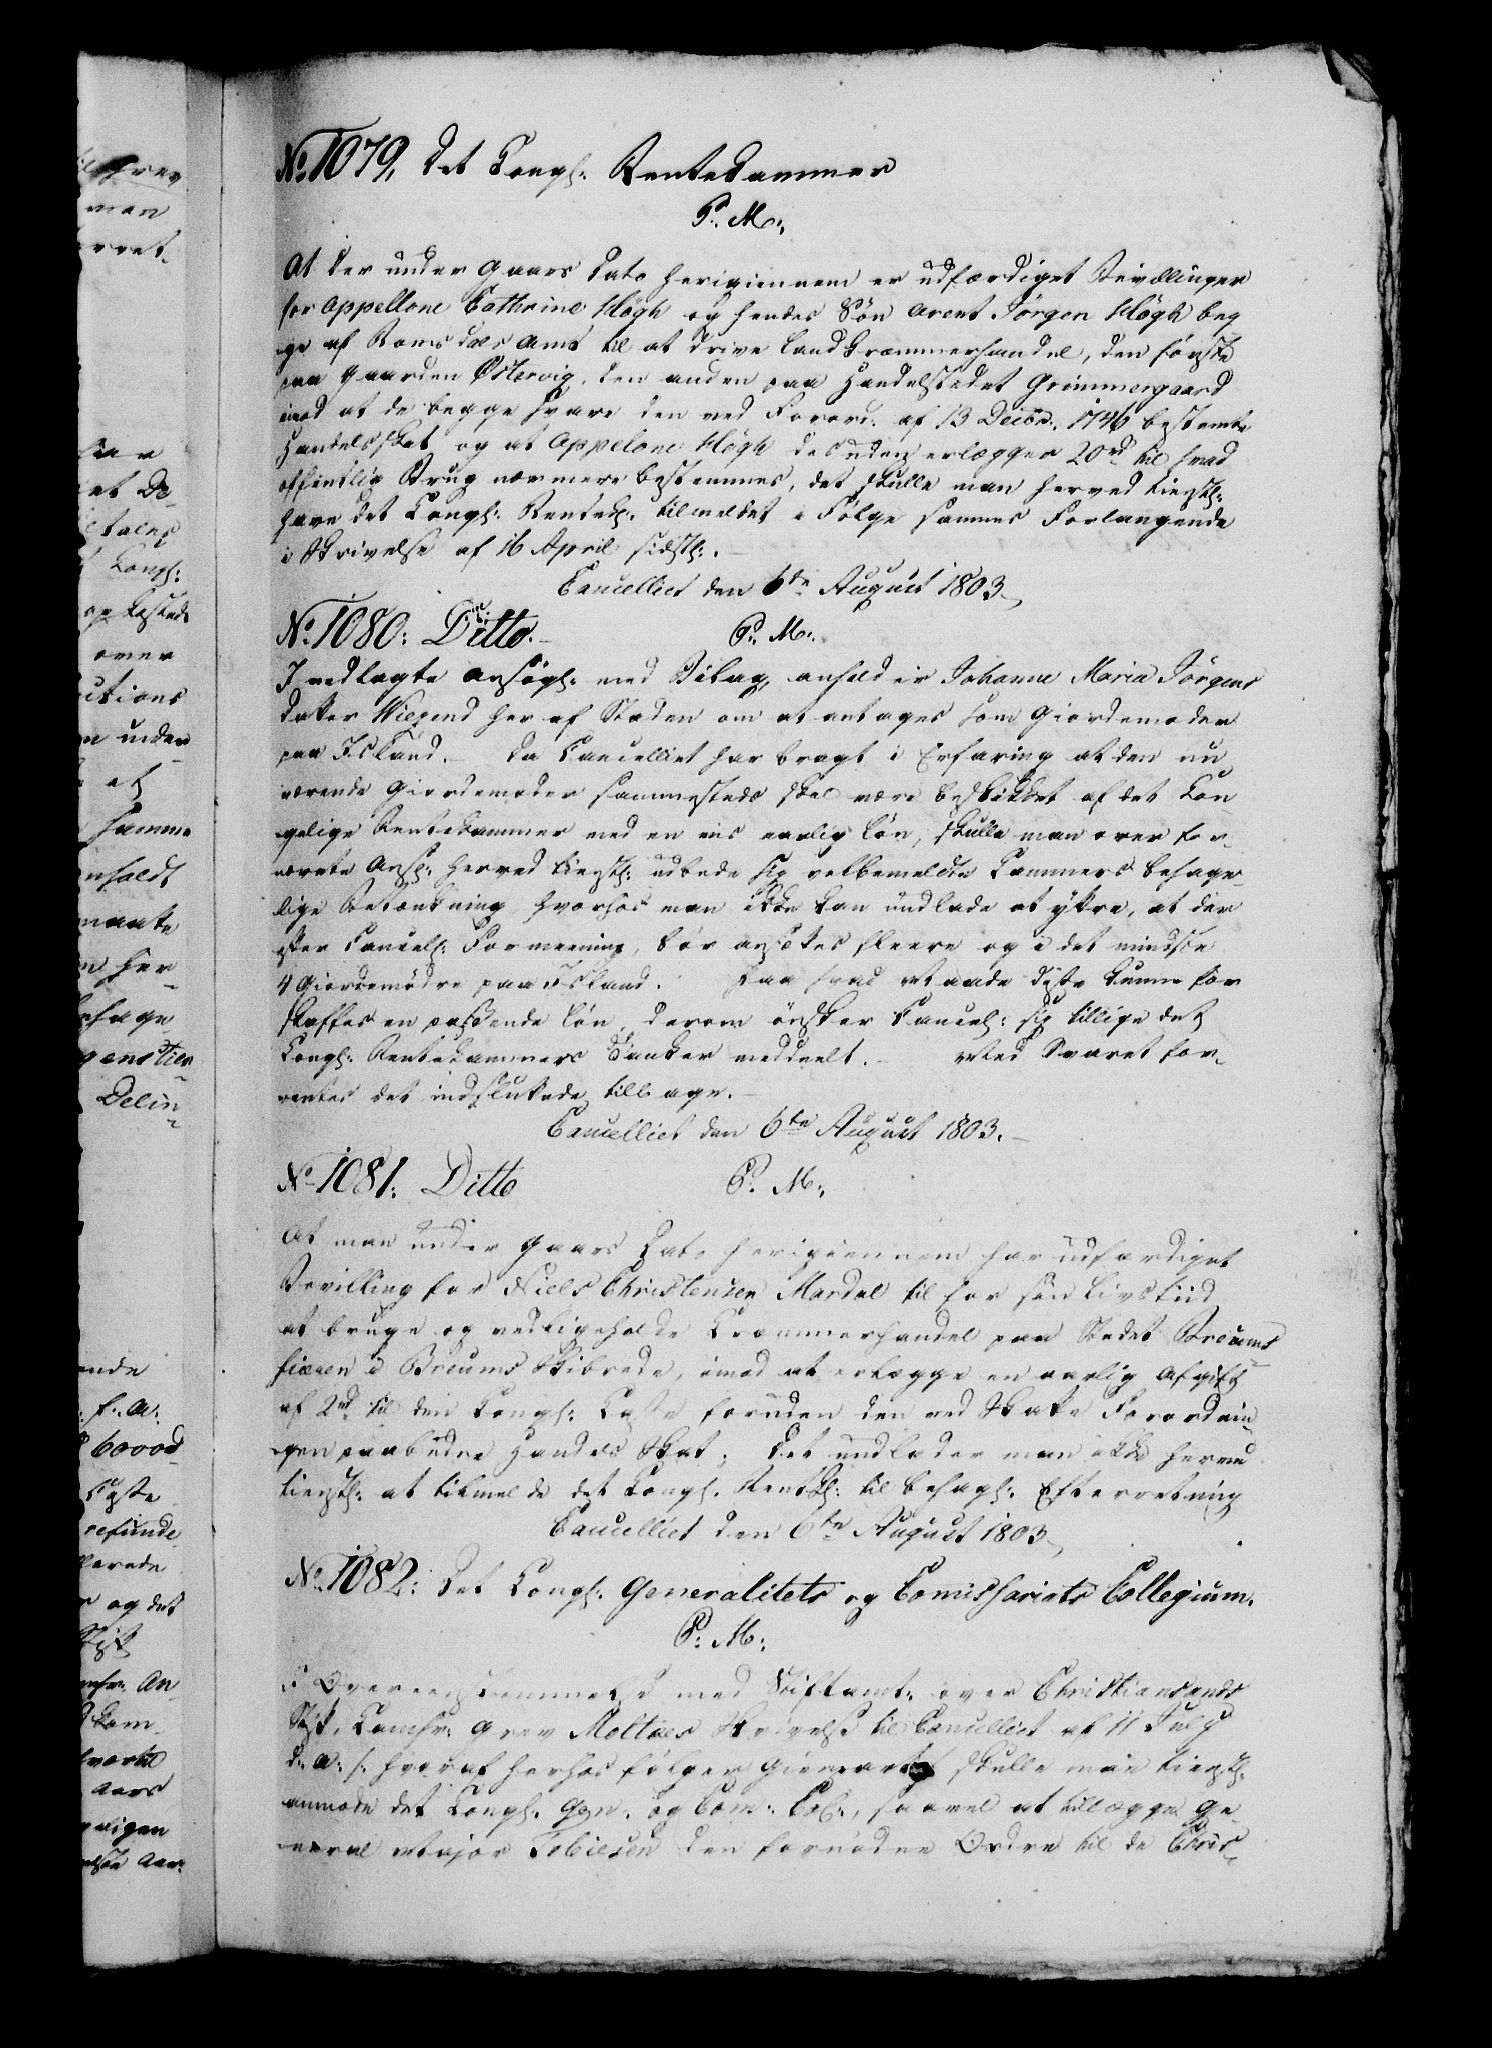 No 1079, Det Kongl: Rentekammer
P. M:
At der under Gaars Dato herigiennem er udfærdiget Bevillinger
for Appellone Cathrine Høgh og hendes Søn Arent Jørgen Høgh beg
ge af Romsdals Amt til at drive Land Kræmmerhandel, den første
paa Gaarden Østervig, den anden paa Handelstedet Grimmergaard
imod at de begge svare den ved Forord: af 13 Decbr. 1746 bestemte
Handels skat og at Appelone Høgh desuden erlægger 20rd til hvad
offentlig Brug nærmere bestemmes, det skulle man herved tienstl:
have det Kongl: Rentek: tilmeldet i Følge sammes Forlangende
i Skrivelse af 16 April sidstl:.
Cancelliet den 6te August 1803
No 1080: Ditto. P: M:
I vedlagte Ansøgl: med Bilag, anholder Johanne Maria Jørgens
datter Wiegend her af Staden om at antages som Giordemoder
paa Island. Da Cancelliet har bragt i Erfaring at den nu
værende Giordemoder sammesteds skal være beskikket af det Kon
gelige Rentekammer med en vis aarlig Løn, skulle man over for-
nævnte Ans: herved tienstl: udbede sig velbemeldte Kammers behage-
lige Betænkning, hvorhos man ikke kan undlade at yttre, at der
efter Cancel: Formeening, bør ansættes fleere og i det mindste
4 Giordemødre paa Island. Paa hvad Maade disse kunne for
skaffes en passende Løn, derom ønsker Cancel: sig tillige det
Kongl: Rentekammers Tanker meddeelt. Med Svaret for-
ventes det indsluttede tilbage.
Cancelliet den 6te August 1803.
No 1081: Ditto P. M:
At man under Gaars Dato herigiennem har udfærdiget
Bevilling for Niels Christensen Mardal til for sin Livstiid
at bruge og vedligeholde Kræmmerhandel paa Stedet Breums
fiæren i Breums Skibrede, imod at erlægge en aarlig Afgift
af 2rd til den Kongl: Casse foruden den ved Skatte Forordnin-
gen paabudne Handels Skat; det undlader man ikke herved
tienstl: at tilmelde det Kongl. Rentek: til behagl: Efterretning
Cancelliet den 6te August 1803
No 1082: Det Kongl: Generalitets og Comissariats Collegium.
P: M:
I Overeensstemmelse med Stiftamt: over Christiansands
Stift, Kamhr: Grev Moltkes Skrivelse til Cancelliet af 11 July
d. A: /: hvoraf herhos følger Gienpart skulle man tienstl:
anmode det Kongl. Gen: og Com: Col:, saavel at tillægge Ge-
neral Major Tobiesen den fornødne Ordre til de Chris-